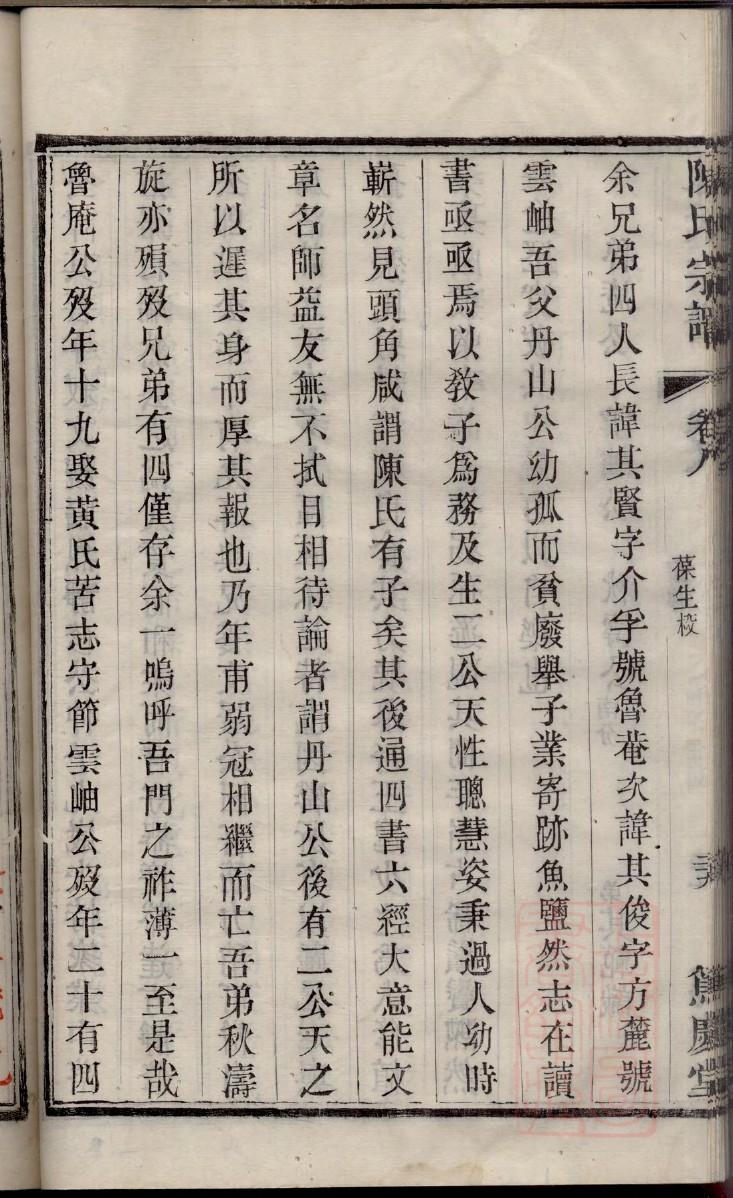 陳氏宗譜
卷八
葆生校
余兄弟四人長諱其賢字介孚號魯菴次諱其俊字方麓號
雲岫吾父丹山公幼孤而貧廢舉子業寄跡魚鹽然志在讀
書亟亟焉以敎子爲務及生二公天性聰慧姿秉過人幼時
嶄然見頭角咸謂陳氏有子矣其後通四書六經大意能文
章名師益友無不拭目相待論者謂丹山公後有二公天之
所以遲其身而厚其報也乃年甫弱冠相繼而亡吾弟秋濤
旋亦殞歿兄弟有四僅存余一嗚呼吾門之祚薄一至是哉
魯庵公歿年十九娶黃氏苦志守節雲岫公歿年二十有四